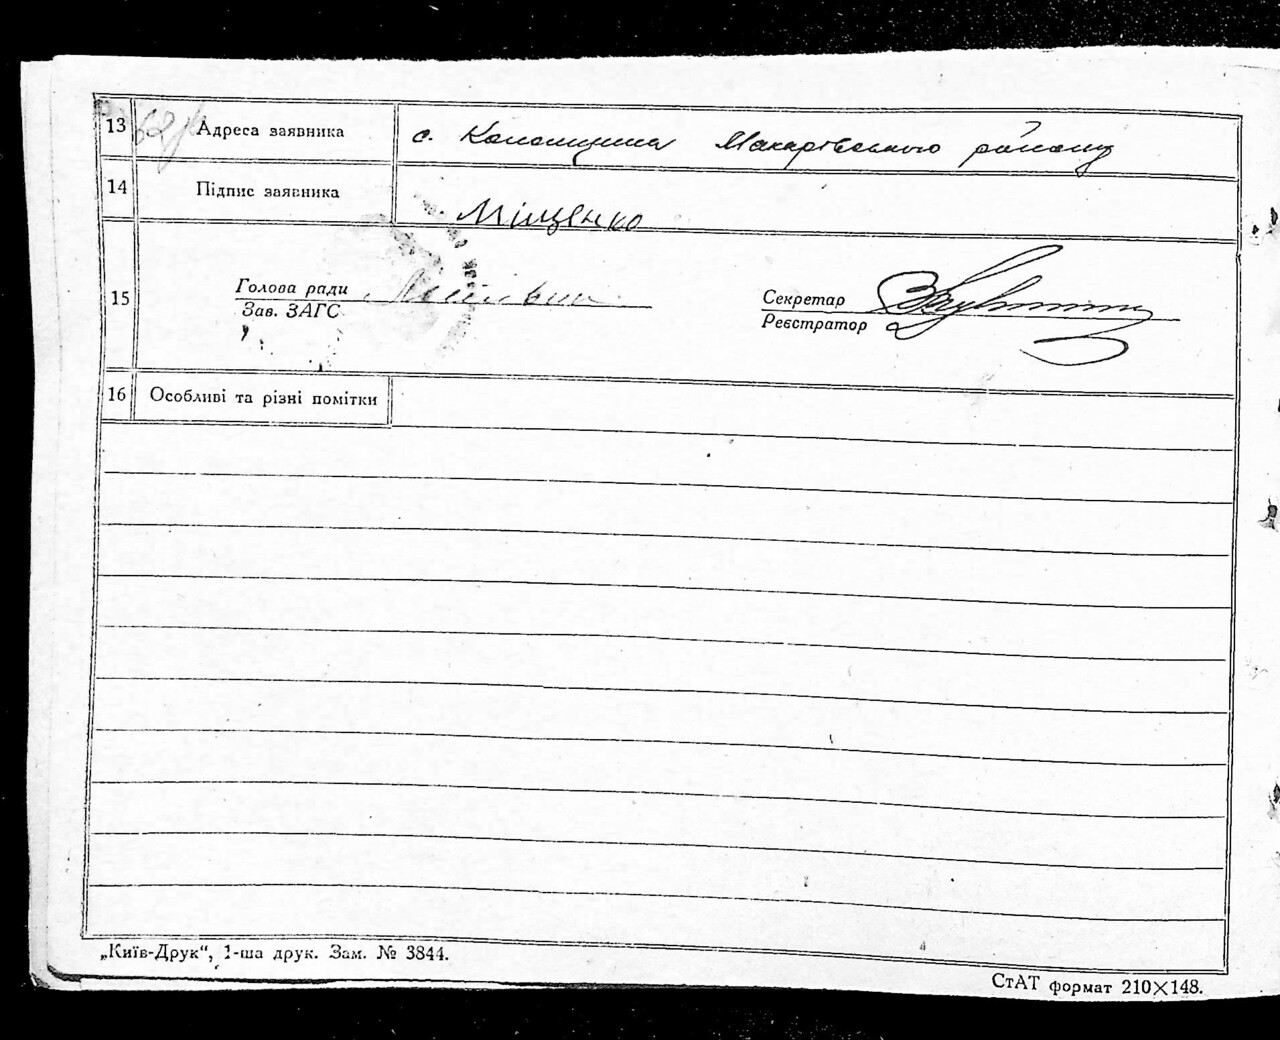 13 Адреса заявника с. Колонщина Макарівського району
14 Підпис заявника Міщенко
15 Голова ради
Зав. ЗАГС
Секретар
Реєстратор
16 Особливі та різні помітки
„Київ-Друк“, 1-ша друк. Зам. № 3844.
СтАТ формат 210×148.